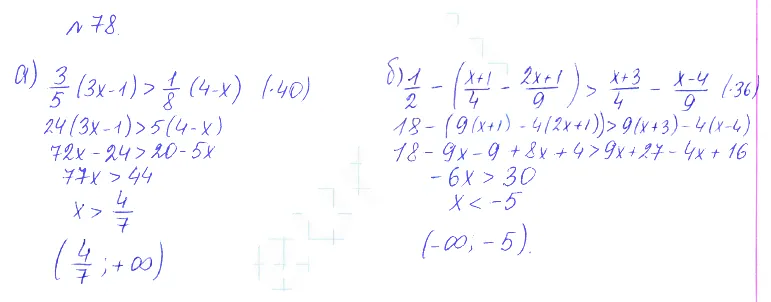 № 78.
а) 3/5 (3x-1) > 1/8 (4-x) (·40)
24(3x-1) > 5(4-x)
72x - 24 > 20 - 5x
77x > 44
x > 4/7
(4/7 ; +∞)
б) 1/2 - ((x+1)/4 - (2x+1)/9) > (x+3)/4 - (x-4)/9 (·36)
18 - (9(x+1) - 4(2x+1)) > 9(x+3) - 4(x-4)
18 - 9x - 9 + 8x + 4 > 9x + 27 - 4x + 16
-6x > 30
x < -5
(-∞, -5).